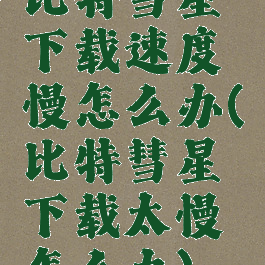 比特彗星
下载速度
慢怎么办(
比特彗星
下载太慢
怎么办)